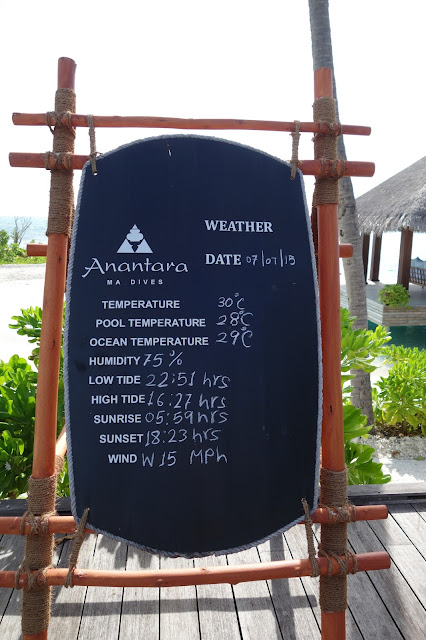 WEATHER
Anantara
MA DIVES
DATE 07/07/15
TEMPERATURE 30°C
POOL TEMPERATURE 28°C
OCEAN TEMPERATURE 29°C
HUMIDITY 75%
LOW TIDE 22:51 hrs
HIGH TIDE 16:27 hrs
SUNRISE 05:59 hrs
SUNSET 18:23 hrs
WIND W 15 MPh